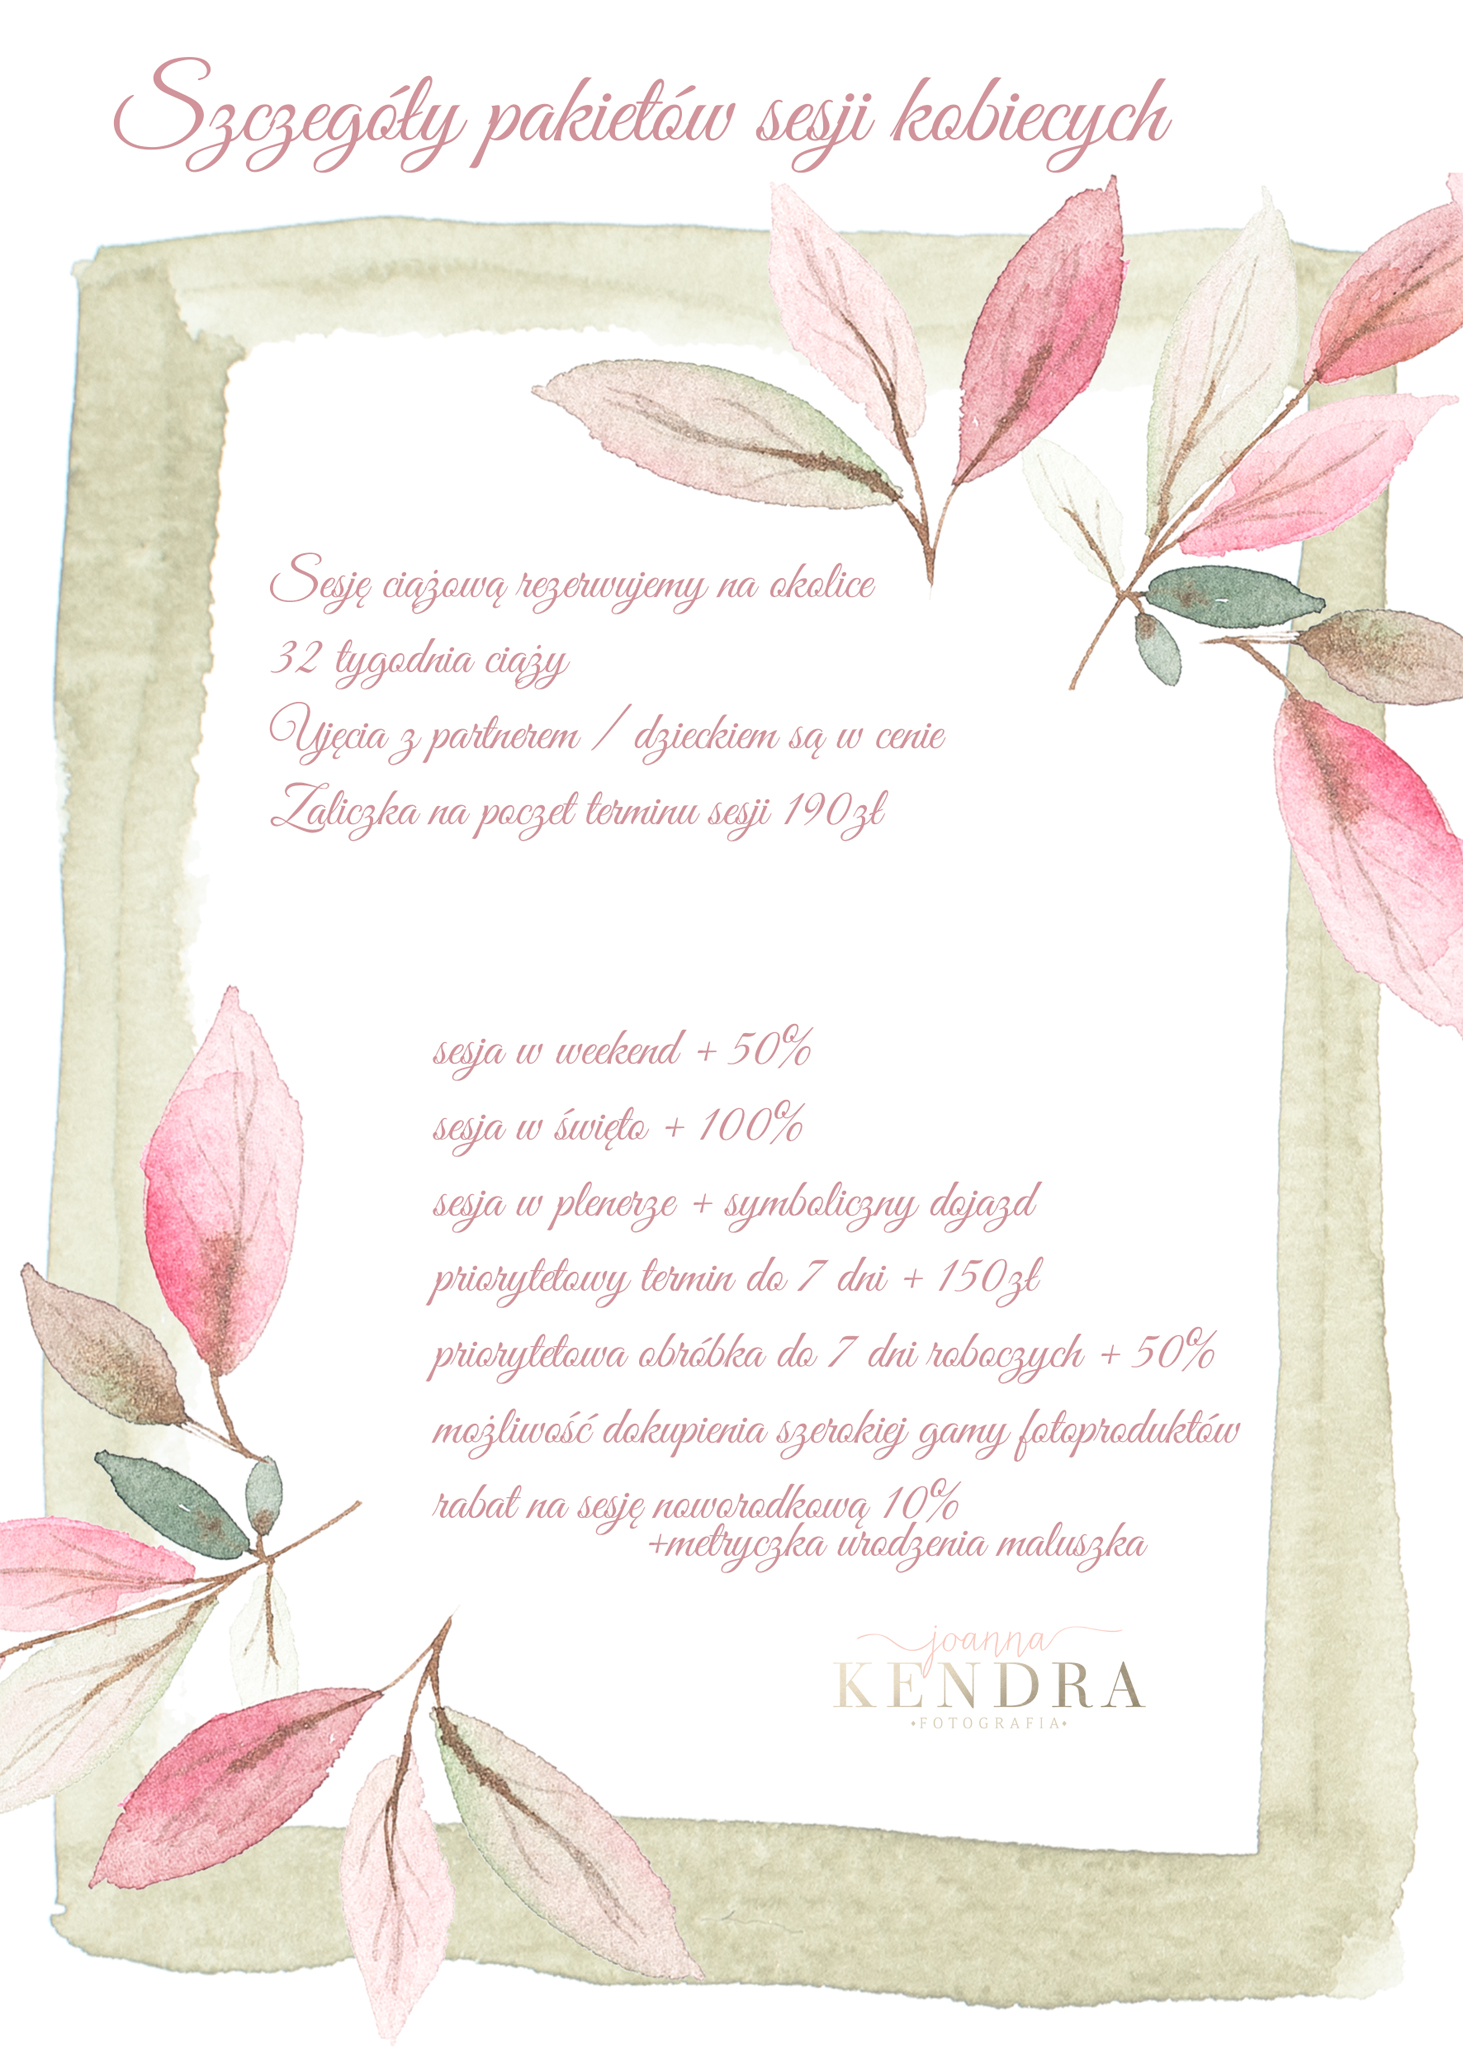 Szczegóły pakietów sesji kobiecych
Sesję ciążową rezerwujemy na okolice
32 tygodnia ciąży
Ujęcia z partnerem / dzieckiem są w cenie
Zaliczka na poczet terminu sesji 190zł
sesja w weekend + 50%
sesja w święto + 100%
sesja w plenerze + symboliczny dojazd
priorytetowy termin do 7 dni + 150zł
priorytetowa obróbka do 7 dni roboczych + 50%
możliwość dokupienia szerokiej gamy fotoproduktów
rabat na sesję noworodkową 10%
+metryczka urodzenia maluszka
joanna
KENDRA
•FOTOGRAFIA•